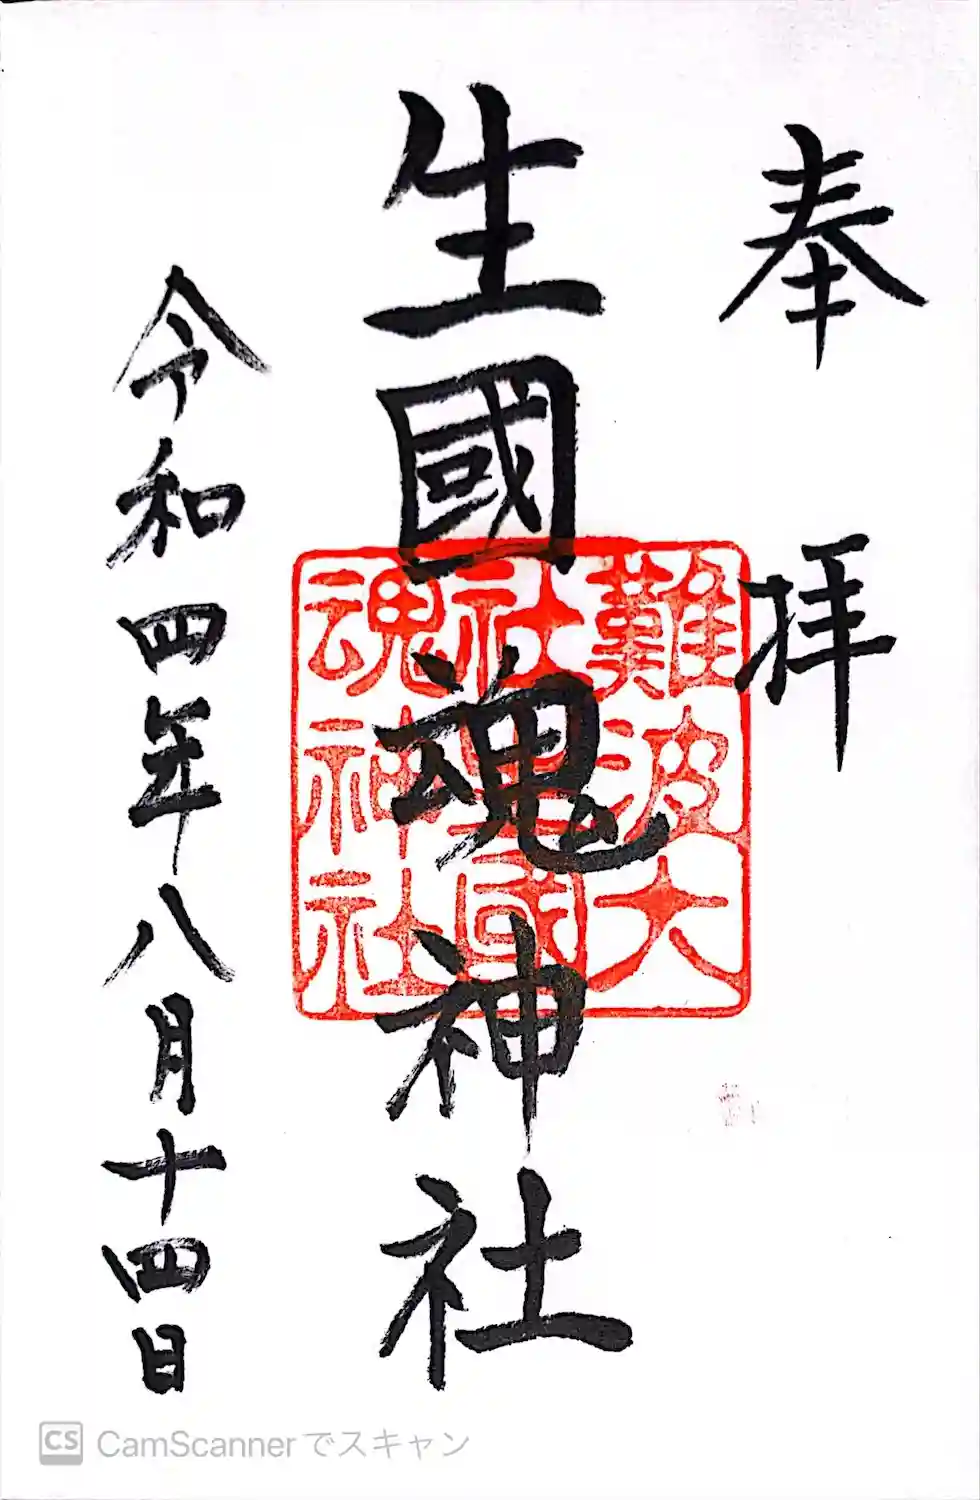 奉拝
生國魂神社
令和四年八月十四日
難波大
社生國
魂神社
CS CamScannerでスキャン